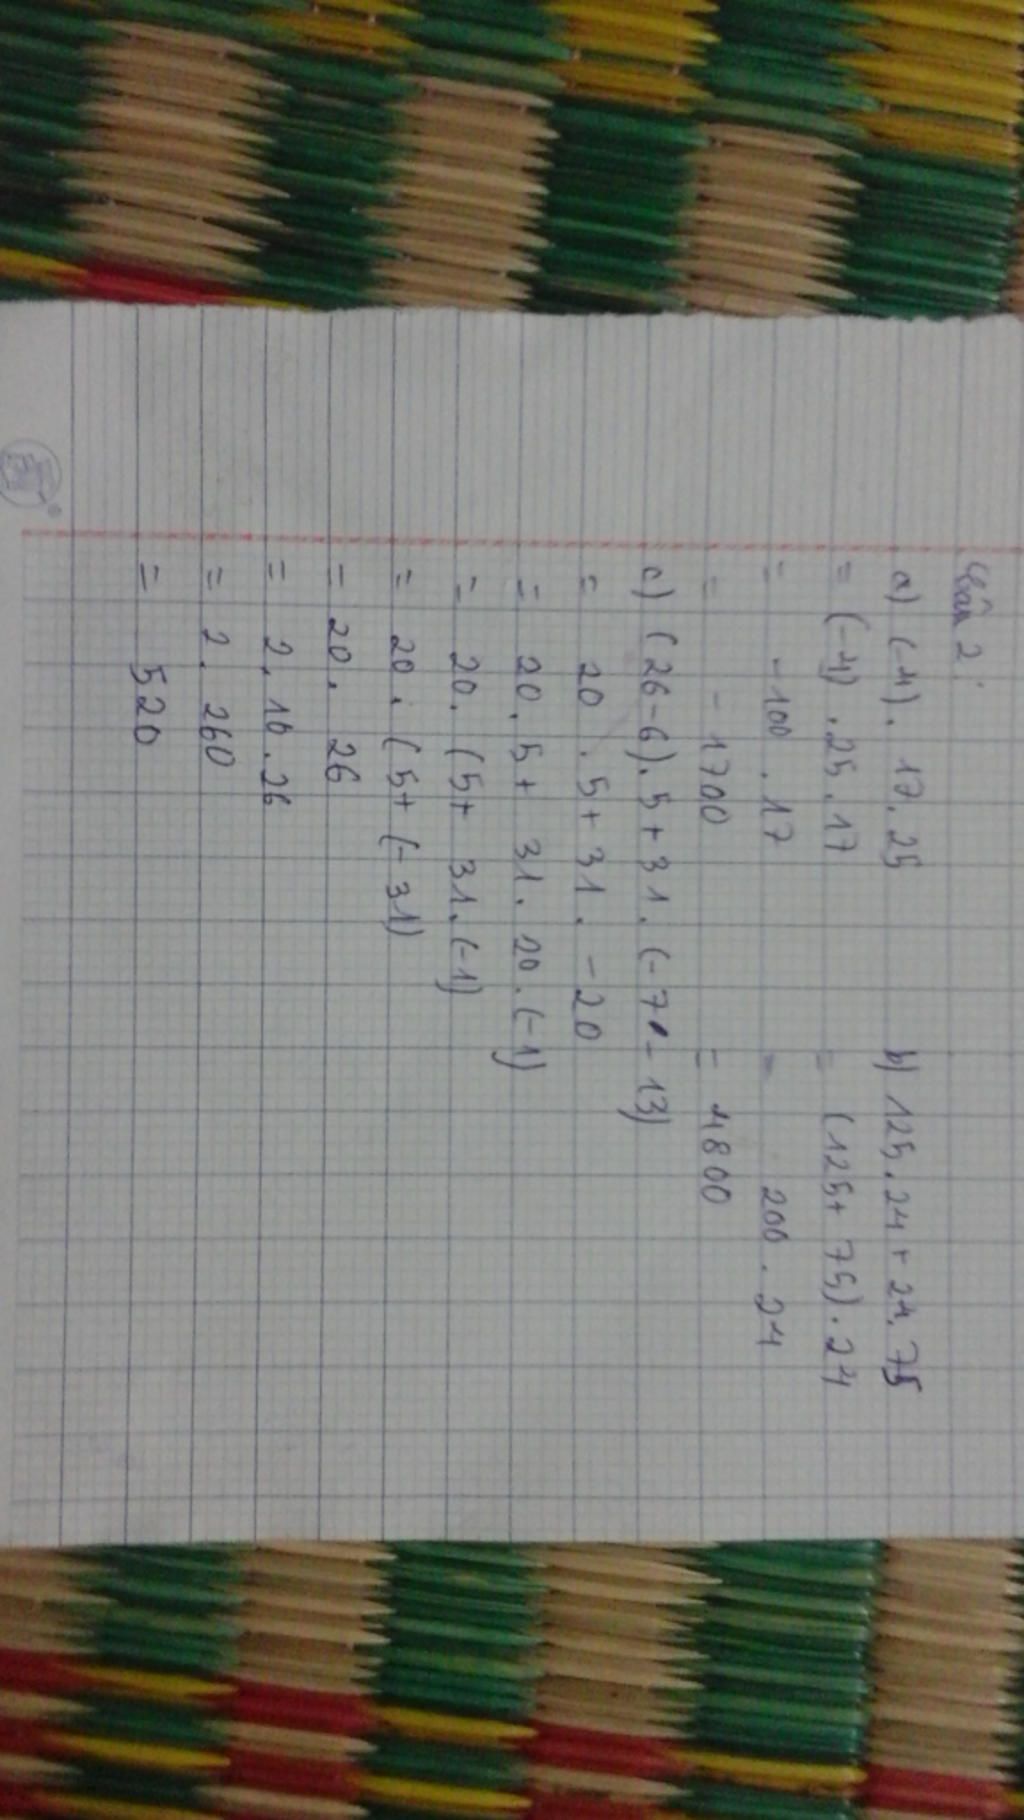 Câu 2:
a) (-4). 17. 25
= (-4) . 25 . 17
= -100 . 17
= -1700
b) 125. 24 + 24. 75
= (125 + 75) . 24
= 200 . 24
= 4800
c) (26-6). 5 + 31. (-7 - 13)
= 20 . 5 + 31. -20
= 20. 5 + 31. 20. (-1)
= 20. (5 + 31. (-1)
= 20 . (5 + (-31)
= 20. 26
= 2. 10. 26
= 2. 260
= 520